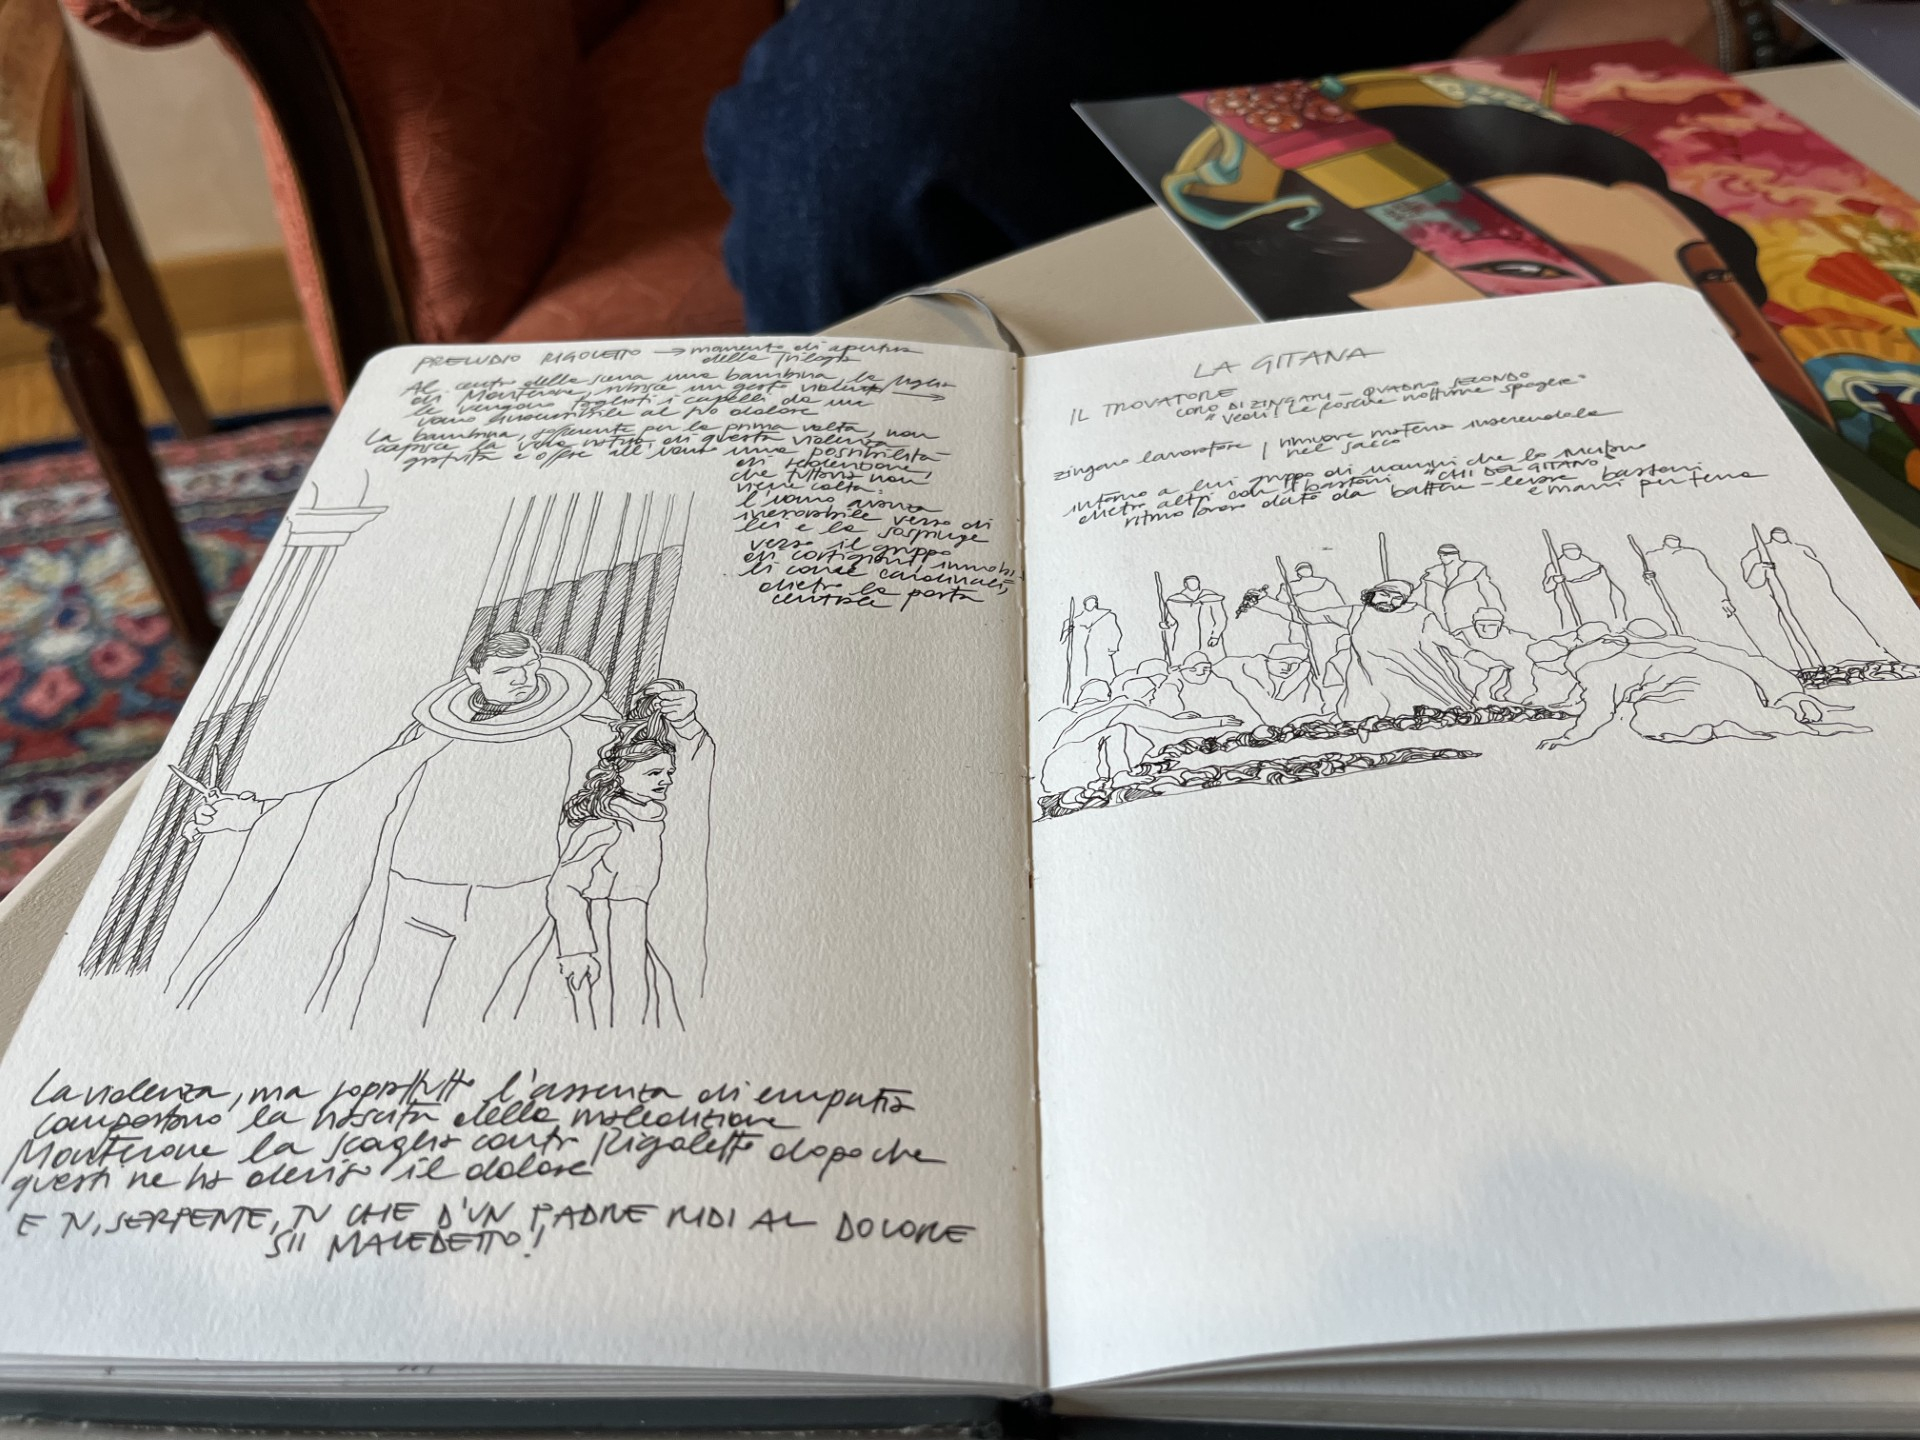 PRELUDIO RIGOLETTO → momento di apertura
della Trilogia
Al centro della scena una bambina, la figlia
di Monterone, subisce un gesto violento →
le vengono tagliati i capelli da un
uomo insensibile al suo dolore
La bambina, sofferente per la prima volta, non
capisce la vera natura di questa violenza
gratuita e offre all'uomo una possibilità
di redenzione,
che tuttavia non
viene colta:
l'uomo avanza
inesorabile verso di
lei e la sospinge
verso il gruppo
di cortigiani, immobi
li come cardinali,
dietro la porta
centrale
La violenza, ma soprattutto l'assenza di empatia
comportano la nascita della maledizione
Monterone la scaglia contro Rigoletto dopo che
questi ne ha deriso il dolore
E TU, SERPENTE, TU CHE D'UN PADRE RIDI AL DOLORE
SII MALEDETTO!
LA GITANA
IL TROVATORE
CORO DI ZINGARI - QUADRO SECONDO
"Vedi! Le fosche notturne spoglie"
zingaro lavoratore / rimuove materia inserendola
nel sacco
intorno a lui gruppo di uomini che lo
dietro altri con i bastoni "CHI DEL GITANO"
ritmo lavoro dato da battere - levare bastoni
e mani per terra